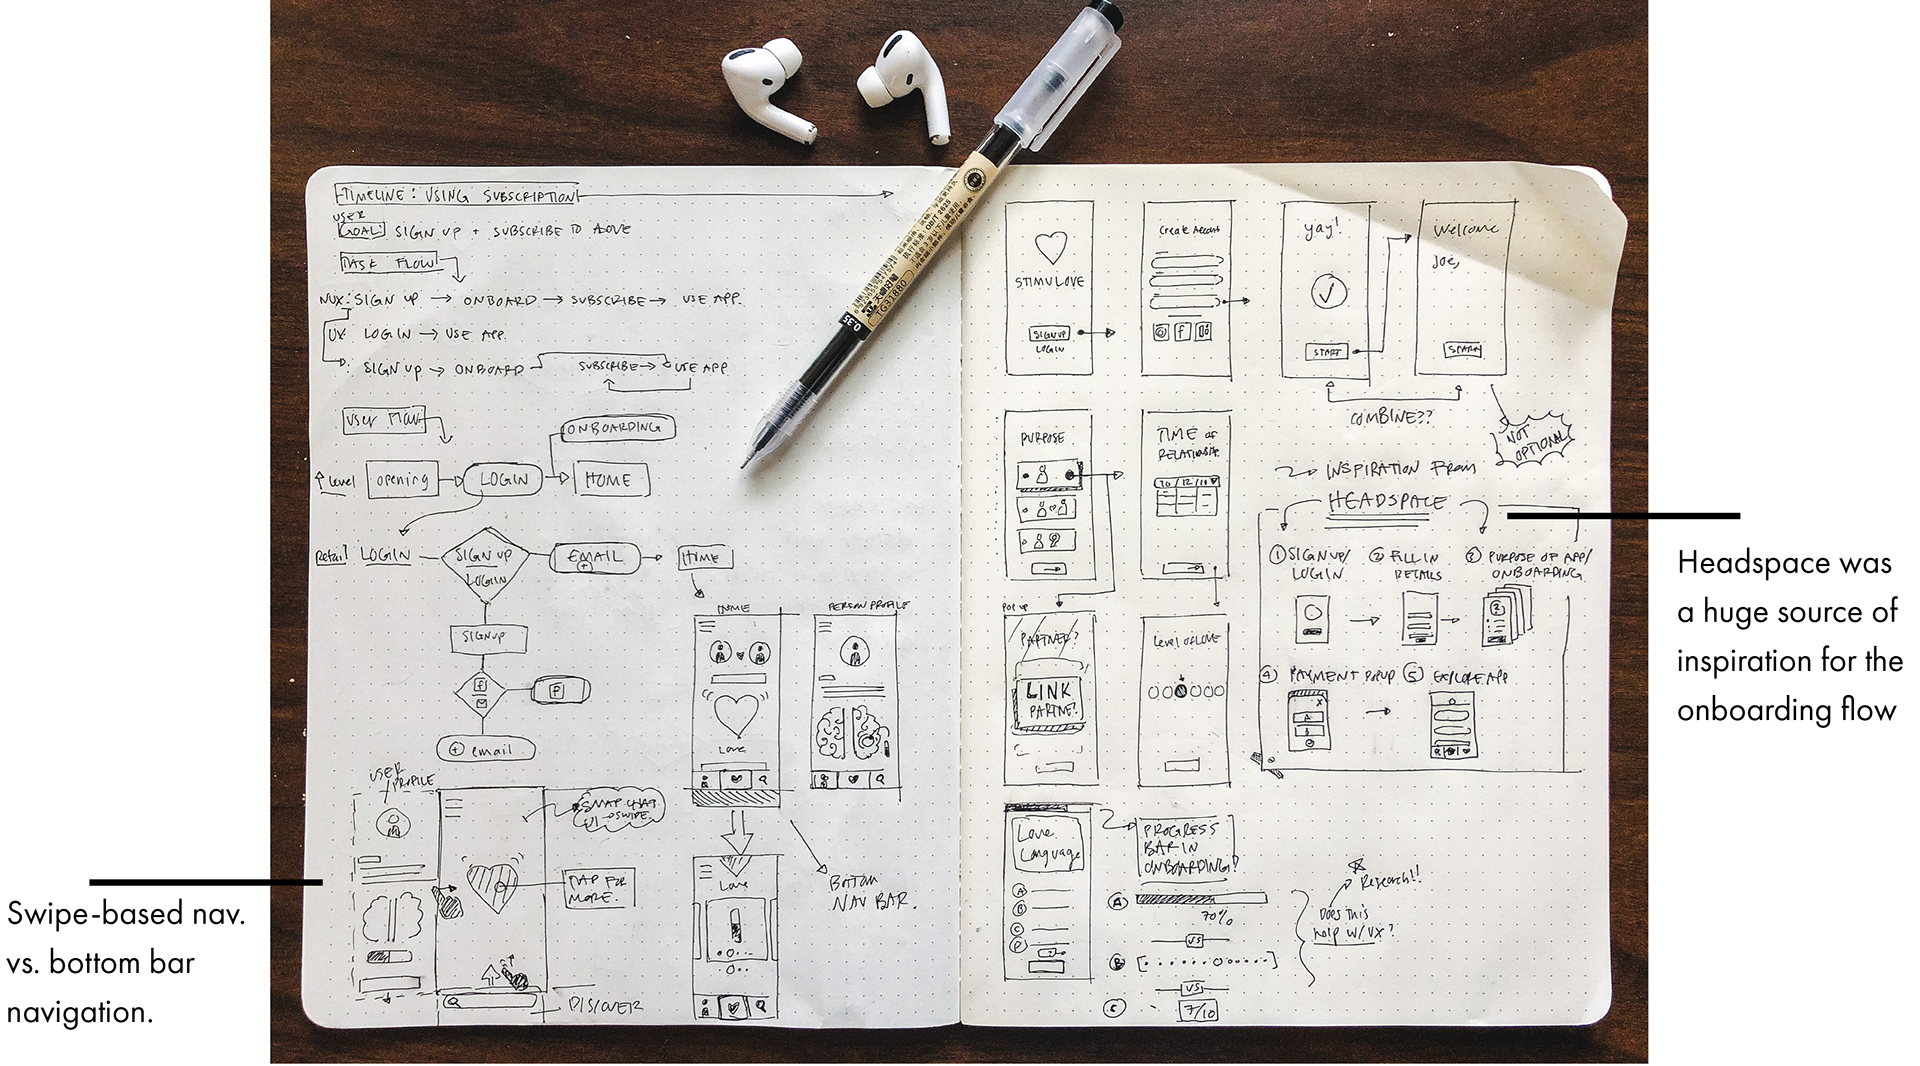 TIMELINE: USING SUBSCRIPTION
USER
GOAL: SIGN UP + SUBSCRIBE TO
TASK FLOW
NUX: SIGN UP → ONBOARD → SUBSCRIBE → USE APP.
UX: LOGIN → USE APP.
SIGN UP → ONBOARD SUBSCRIBE → USE APP
User Flow
ONBOARDING
↑ Level opening LOGIN HOME
Detail LOGIN SIGN UP EMAIL HOME
LOGIN
SIGNUP
f
f
+ email
HOME
Love
PERSON PROFILE
USER
PROFILE
SNAP CHAT
UI → SWIPE.
TAP FOR
MORE.
DISCOVER
Love
BOTTOM
NAV BAR.
0.35
TG31880
STIMULOVE
SIGN UP
LOGIN
Create Account
f
yay!
START
Welcome
Joe,
SPARK
COMBINE??
NOT
OPTIONAL
PURPOSE
TIME of
RELATIONSHIP
10/12/18
POP UP
PARTNER?
LINK
PARTNER?
Level of LOVE
INSPIRATION FROM
HEADSPACE
1 SIGN UP/
LOGIN
2 FILL IN
DETAILS
3 PURPOSE OF APP/
ONBOARDING
4 PAYMENT POPUP
5 EXPLORE APP
Love
Language
A
B
C
D
PROGRESS
BAR IN
ONBOARDING?
A
70%
VS
B
VS
C 7/10
Research!!
Does this
help w/UX?
Swipe-based nav.
vs. bottom bar
navigation.
Headspace was
a huge source of
inspiration for the
onboarding flow